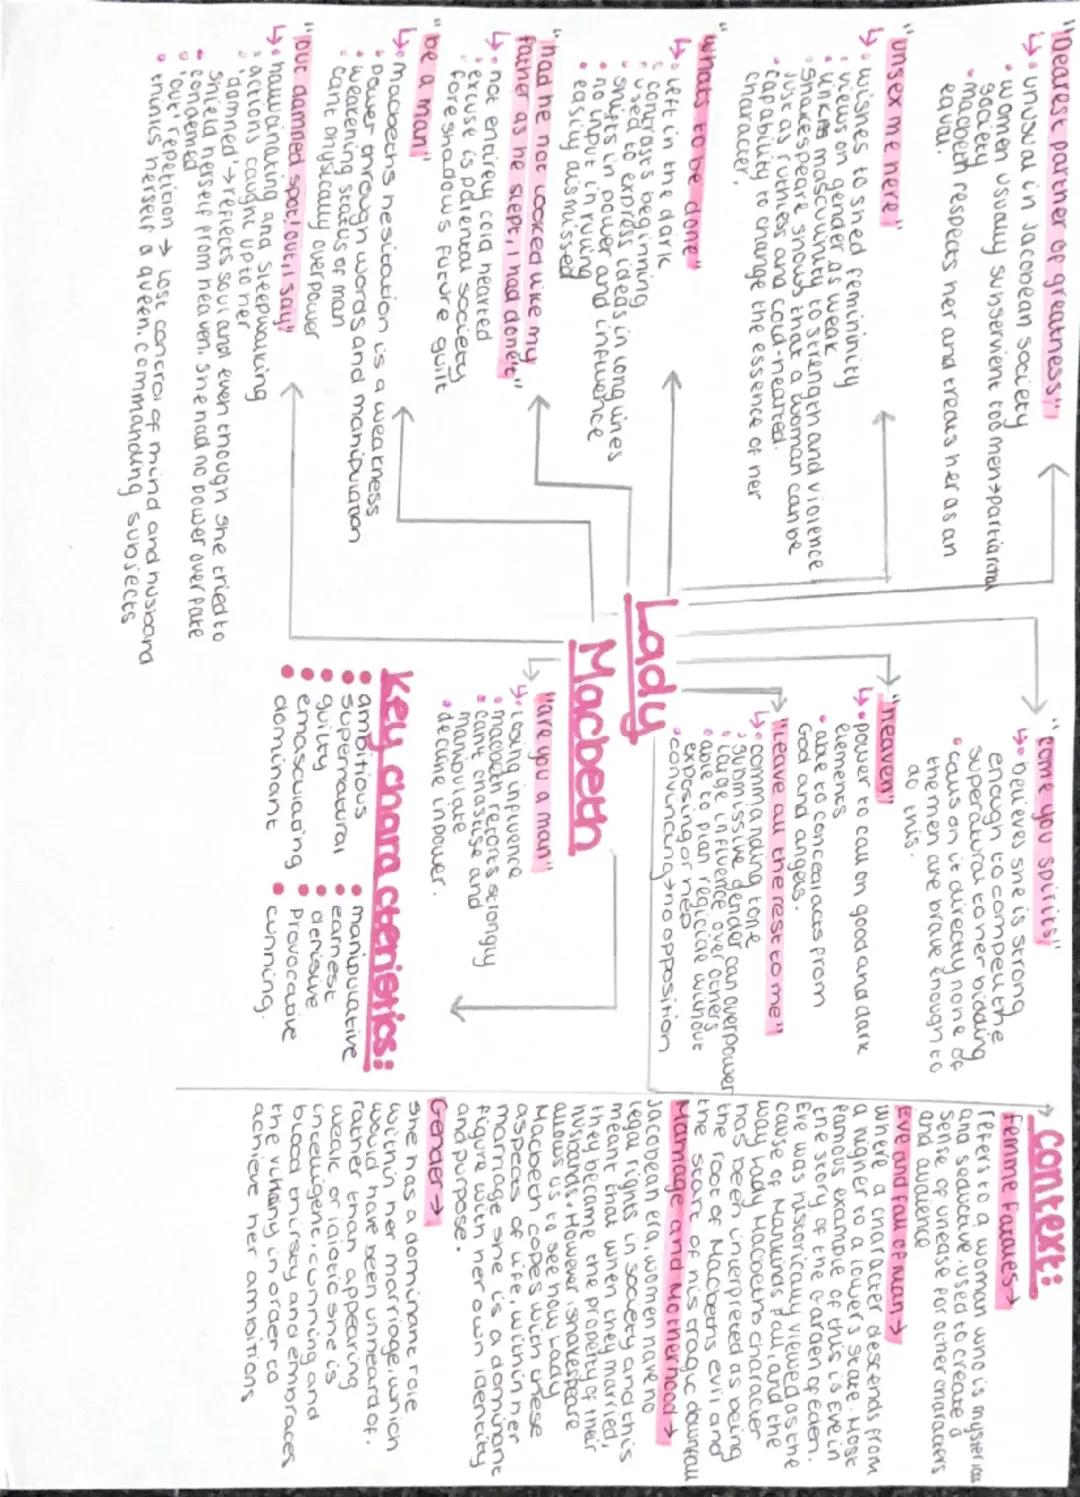 "Dearest partner of greatness"
↳• unusual in Jacobean society
• women usually sunservient to men→partiarchal
society
• macbeth respects her and treats her as an
equal.
"unsex me here"
↳• wishes to shed femininity
• views on gender as weak
• links masculinity to strength and violence
• Shakespeare shows that a woman can be
just as ruthless and cold-hearted.
• capability to change the essence of her
character.
"whats to be done"
↳• left in the dark
• contrasts beginning
• used to express ideas in long lines
• shifts in power and influence
• no input in ruling
• easily dismissed
"had he not looked like my
father as he slept, I had done't"
↳• not entirely cold hearted
• excuse is parental society
• foreshadows future guilt
"be a man"
↳• macbeths hesitation is a weakness
• power through words and manipulation
• weakening status of man
• cant physically overpower
"out damned spot! out, I say"
↳• hallucinating and sleepwalking
• actions caught up to her
• 'damned'→reflects soul and even though she tried to
shield herself from heaven, she had no power over fate
• condemed
• 'out' repetition → lost control of mind and husband
• thinks herself a queen, commanding subjects
Lady
Macbeth
"come you spirits"
↳• believes she is strong
enough to compell the
supernatural to her bidding
• calls on it directly none of
the men are brave enough to
do this.
"heaven"
↳• power to call on good and dark
elements
• able to conceal acts from
God and angels.
"Leave all the rest to me"
↳• commanding tone
• submissive gender can overpower
• large influence over others
• able to plan regicide without
exposing or help
• convincing→no opposition
"are you a man"
↳• losing influence
• macbeth retorts strongly
• can't chastise and
manipulate
• decline in power.
Key characteristics:
• ambitious
• supernatural
• guilty
• emasculating
• dominant
• manipulative
• earnest
• derisive
• provocative
• cunning.
Context:
Femme Fatales→
refers to a woman who is mysterious
and seductive. used to create a
sense of unease for other characters
and audience
Eve and fall of man→
where a character descends from
a higher to a lowers state. Most
famous example of this is Eve in
the story of the Garden of eden.
Eve was historically viewed as the
cause of Mankinds fall and the
way Lady Macbeths character
has been interpreted as being
the root of Macbeths evil and
the start of his tragic downfall
Marriage and Motherhood→
Jacobean era, women have no
legal rights in society and this
meant that when they married,
they became the property of their
husbands. However, shakespeare
allows us to see how Lady
Macbeth copes with these
aspects of life. within her
marriage she is a dominant
figure with her own identity
and purpose.
Gender→
She has a dominant role
within her marriage, which
would have been unheard of.
rather than appearing
weak or idiotic she is
intelligent, cunning and
blood thirsty and embraces
the villainy in order to
achieve her ambitions